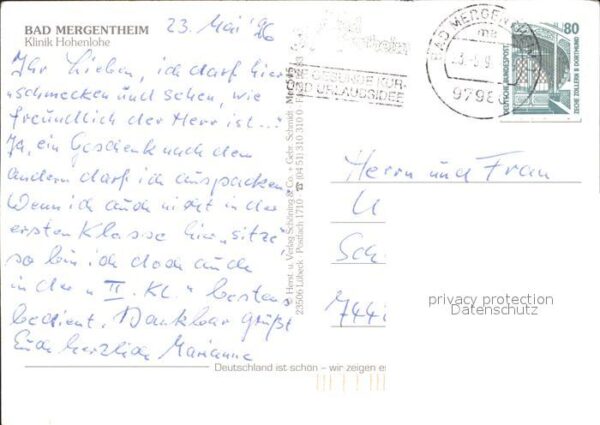 BAD MERGENTHEIM
Klinik Hohenlohe
23. Mai '96
Ihr Lieben, ich darf hier
"schmecken und sehen, wie
freundlich der Herr ist..."
Ja, ein Geschenk nach dem
andern darf ich auspacken.
Wenn ich auch nicht in der
ersten Klasse hier "sitze",
so bin ich doch auch
in der "II. Kl." bestens
bedient. Dankbar grüßt
Euch herzlich Marianne
Herst. u. Verlag Schöning & Co. + Gebr. Schmidt
23506 Lübeck · Postfach 1710 · ☎ (04 51) 310 310
GESUNDE KUR-
UND URLAUBSIDEE
BAD MERGEN
979
80
DEUTSCHE BUNDESPOST
ZECHE ZOLLERN II DORTMUND
Herrn und Frau
U
Sch
744
privacy protection
Datenschutz
Deutschland ist schön – wir zeigen es